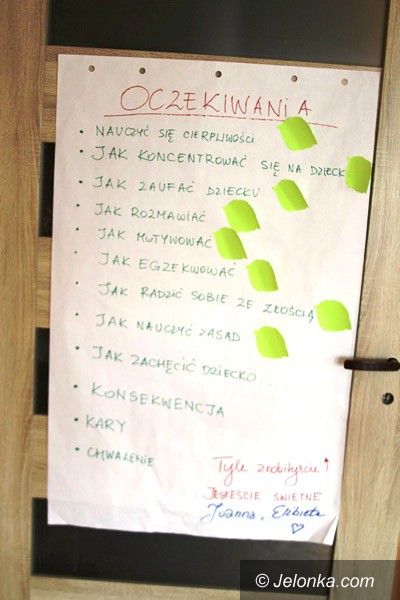 OCZEKIWANIA
• NAUCZYĆ SIĘ CIERPLIWOŚCI
• JAK KONCENTROWAĆ SIĘ NA DZIECK
• JAK ZAUFAĆ DZIECKU
• JAK ROZMAWIAĆ
• JAK MOTYWOWAĆ
• JAK EGZEKWOWAĆ
• JAK RADZIĆ SOBIE ZE ZŁOŚCIĄ
• JAK NAUCZYĆ ZASAD
• JAK ZACHĘCIĆ DZIECKO.....
• KONSEKWENCJA
• KARY
• CHWALENIE
Tyle zrobiłyście!
JESTEŚCIE ŚWIETNE
Joanna, Elżbieta
© Jelonka.com